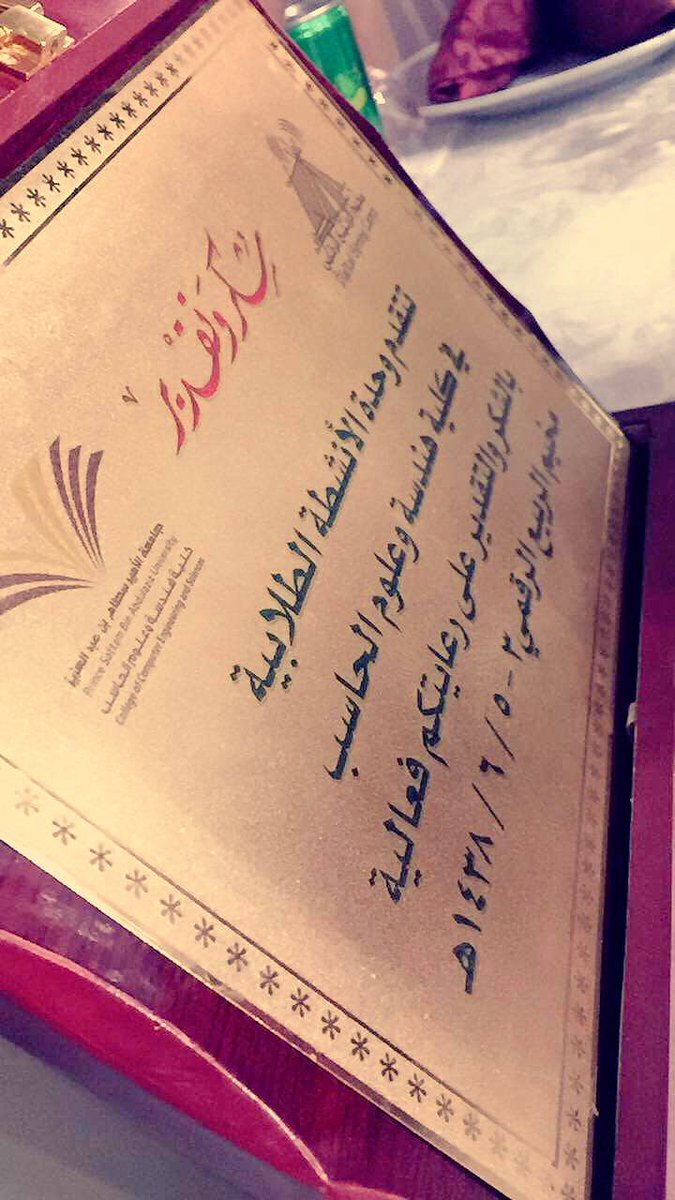 شكر وتقدير
جامعة الأمير سطام بن عبد العزيز
Prince Sattam Bin Abdulaziz University
كلية هندسة وعلوم الحاسب
College of Computer Engineering and Sciences
تتقدم وحدة الأنشطة الطلابية
في كلية هندسة وعلوم الحاسب
بالشكر والتقدير على رعايتكم فعالية
مخيم الربيع الرقمي ٣ - ٥ / ٦ / ١٤٣٨هـ